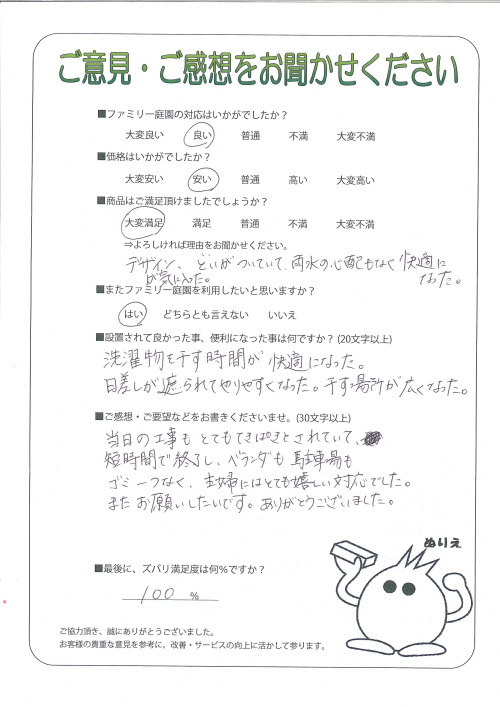 ご意見・ご感想をお聞かせください
■ファミリー庭園の対応はいかがでしたか？
大変良い 良い 普通 不満 大変不満
■価格はいかがでしたか？
大変安い 安い 普通 高い 大変高い
■商品はご満足頂けましたでしょうか？
大変満足 満足 普通 不満 大変不満
⇒よろしければ理由をお聞かせください。
デザイン、といがついていて、雨水の心配もなく快適に
が気に入った。 なった。
■またファミリー庭園を利用したいと思いますか？
はい どちらとも言えない いいえ
■設置されて良かった事、便利になった事は何ですか？(20文字以上)
洗濯物を干す時間が快適になった。
日差しが遮られてやりやすくなった。干す場所が広くなった。
■ご感想・ご要望などをお書きくださいませ。(30文字以上)
当日の工事もとてもてきぱきとされていて、
短時間で終了し、ベランダも駐車場も
ゴミ一つなく、主婦にはとても嬉しい対応でした。
またお願いしたいです。ありがとうございました。
ぬりえ
■最後に、ズバリ満足度は何％ですか？
100 %
ご協力頂き、誠にありがとうございました。
お客様の貴重な意見を参考に、改善・サービスの向上に活かして参ります。